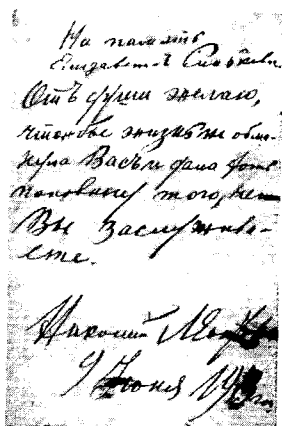 На память
Елизаветѣ
Отъ души желаю,
чтобы жизнь не обма-
нула Васъ и дала хоть
половину того, чего
Вы заслужива-
ете.
Николай
9 Июня